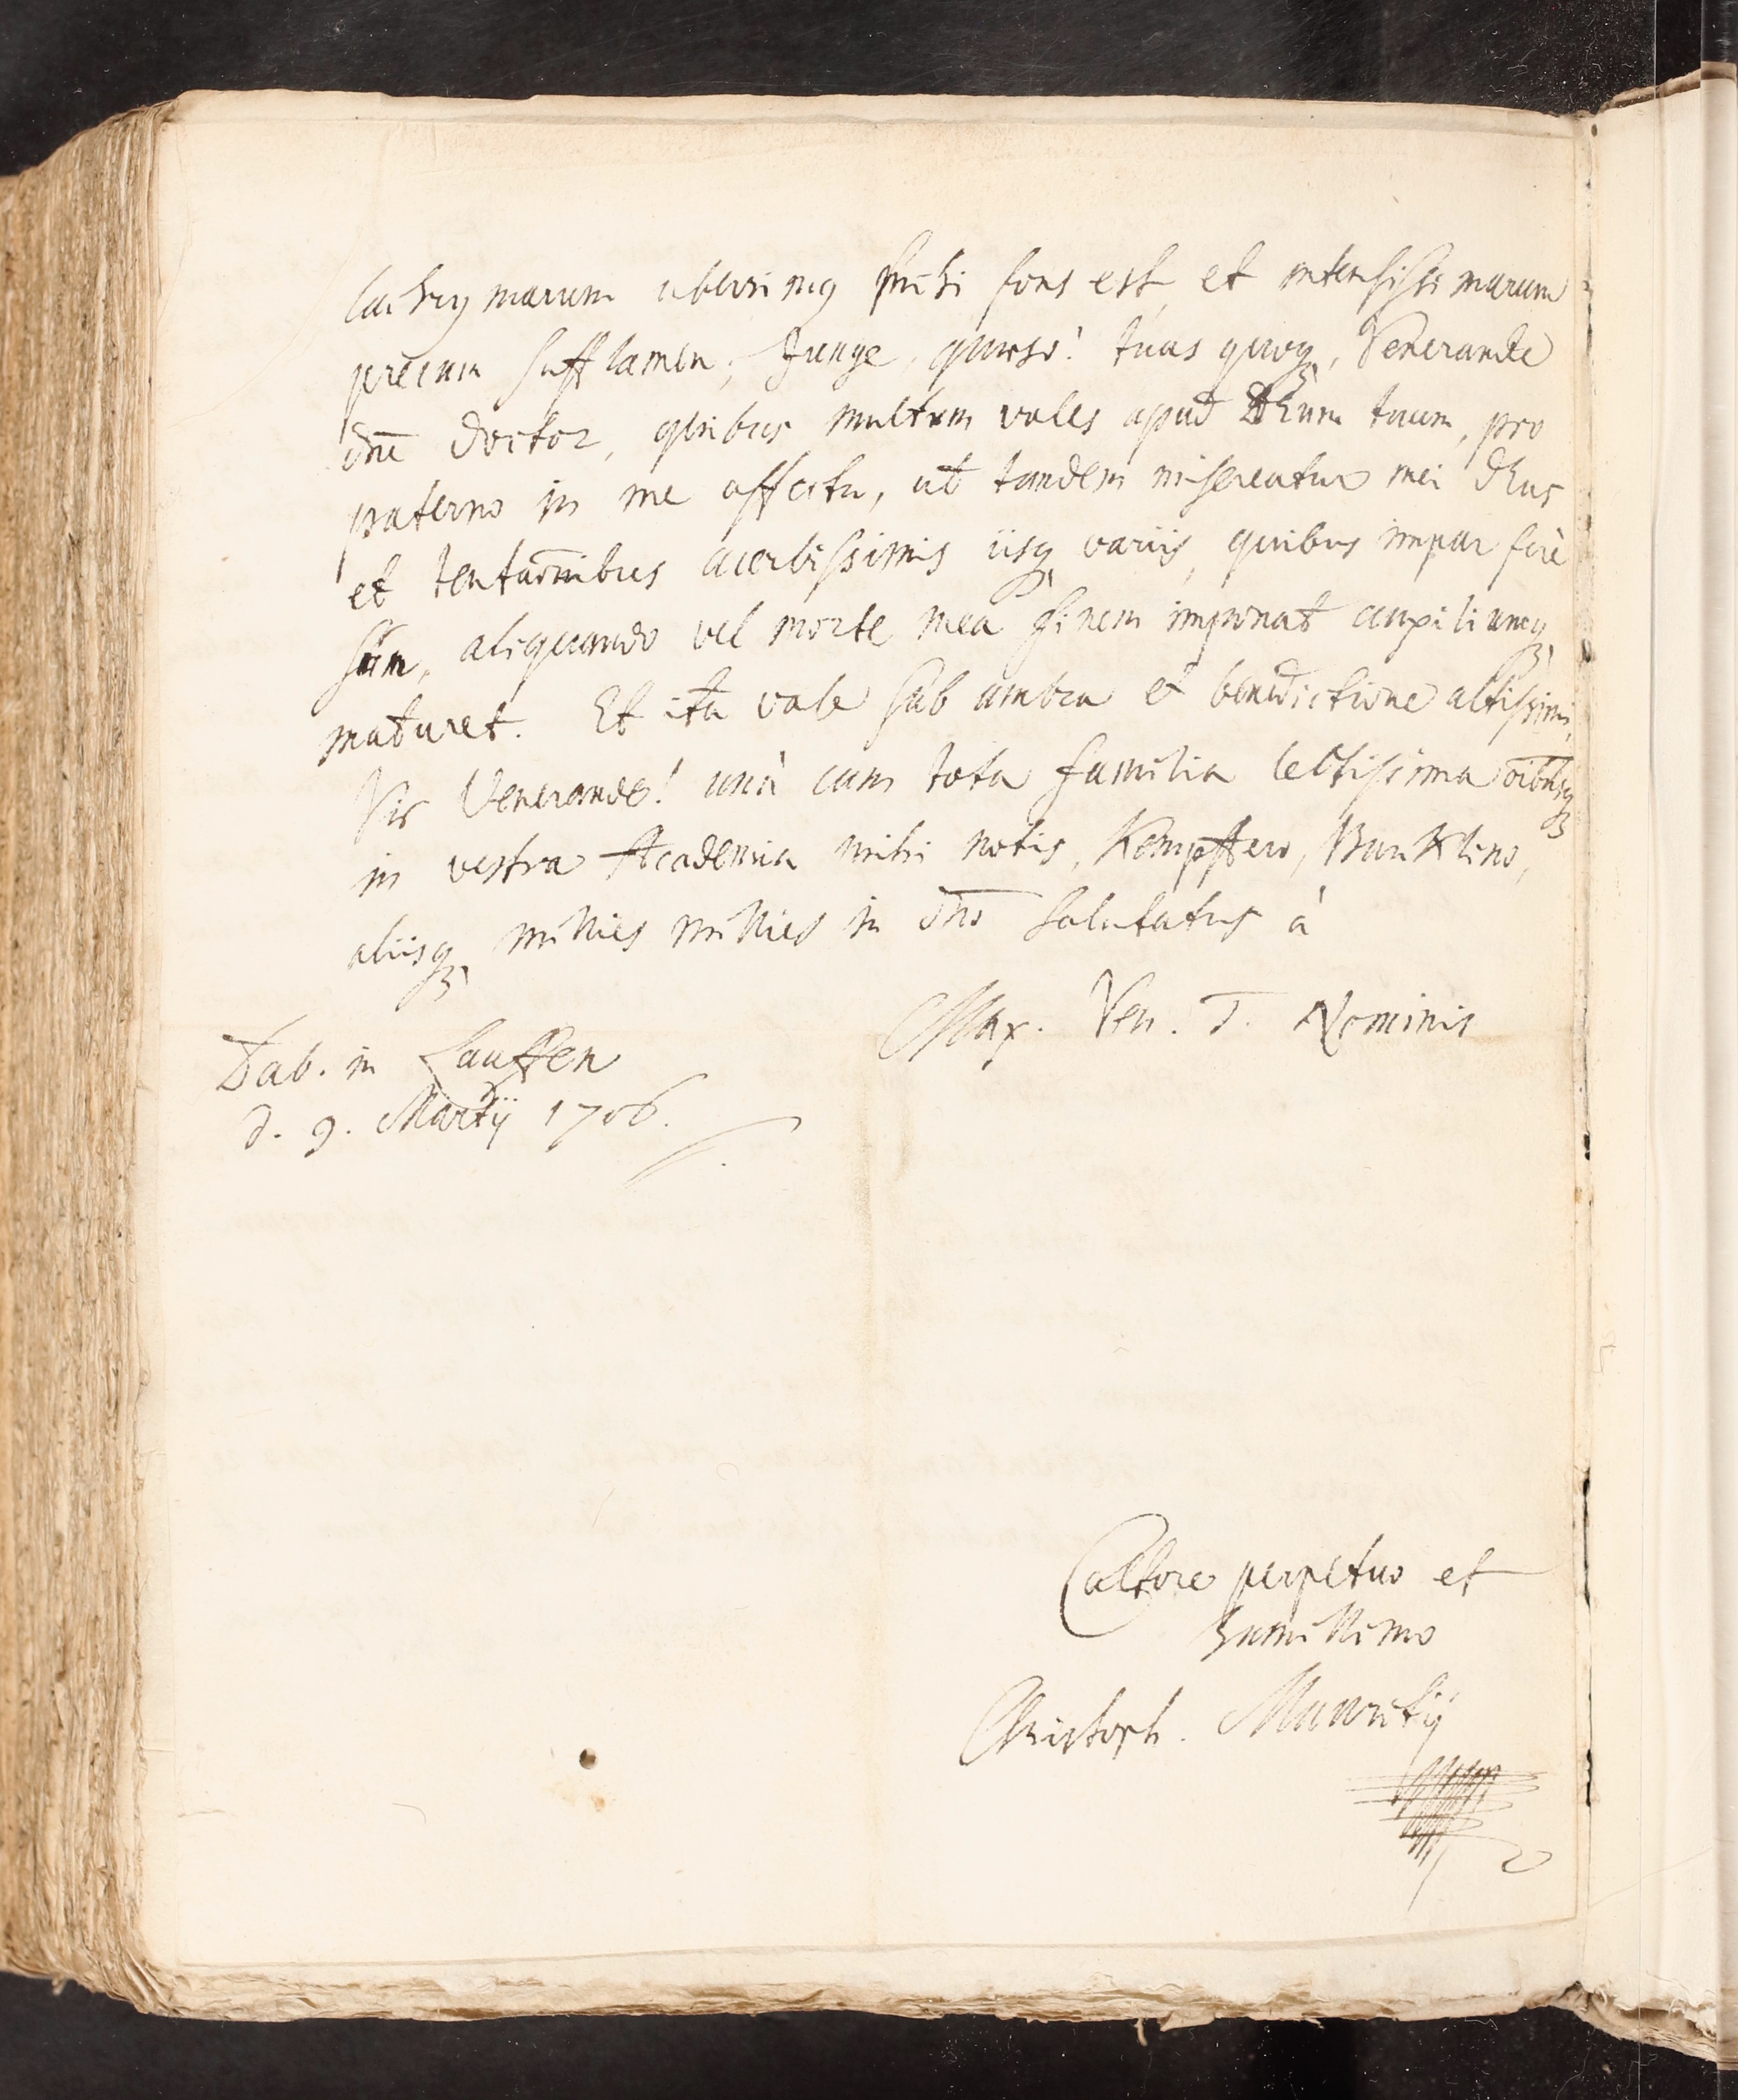 lachrymarum uberrimq mihi fons est et intensissimarum
precum sufflamen; Junge, quæso! tuas quoq, Venerande
dn̄e Doctor, quibus multum vales apud DEum tuum, pro
paterno in me affectu, ut tandem misereatur mei dEus
et tentaōnibus acerbissimis iisq variis, quibus impar ferè
sum, aliquando vel morte mea finem imponat auxiliumq
maturet. Et ita vale sub umbra et benedictione altissimi,
Vir Venerande! unà cum tota familia lectissima oībusq
in vestra Academia mihi notis, Kempffero, Burcklino,
aliisq millies millies in dn̄o salutatus à
Max. Ven. T. Nominis
Dab. in Lauffen
d. 9. Martij 1706.
Cultore perpetuo et
humillimo
Christoph. Mauritij